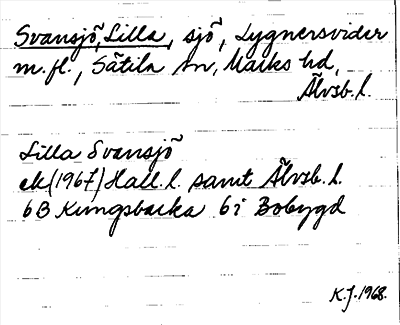 Svansjö, Lilla, sjö, Lygnersvider
m.fl., Sätila sn, Marks hd,
Älvsb.l.
Lilla Svansjö
ek(1967) Hall.l. samt Älvsb.l.
6B Kungsbacka 6i Bobygd
K.J. 1968.